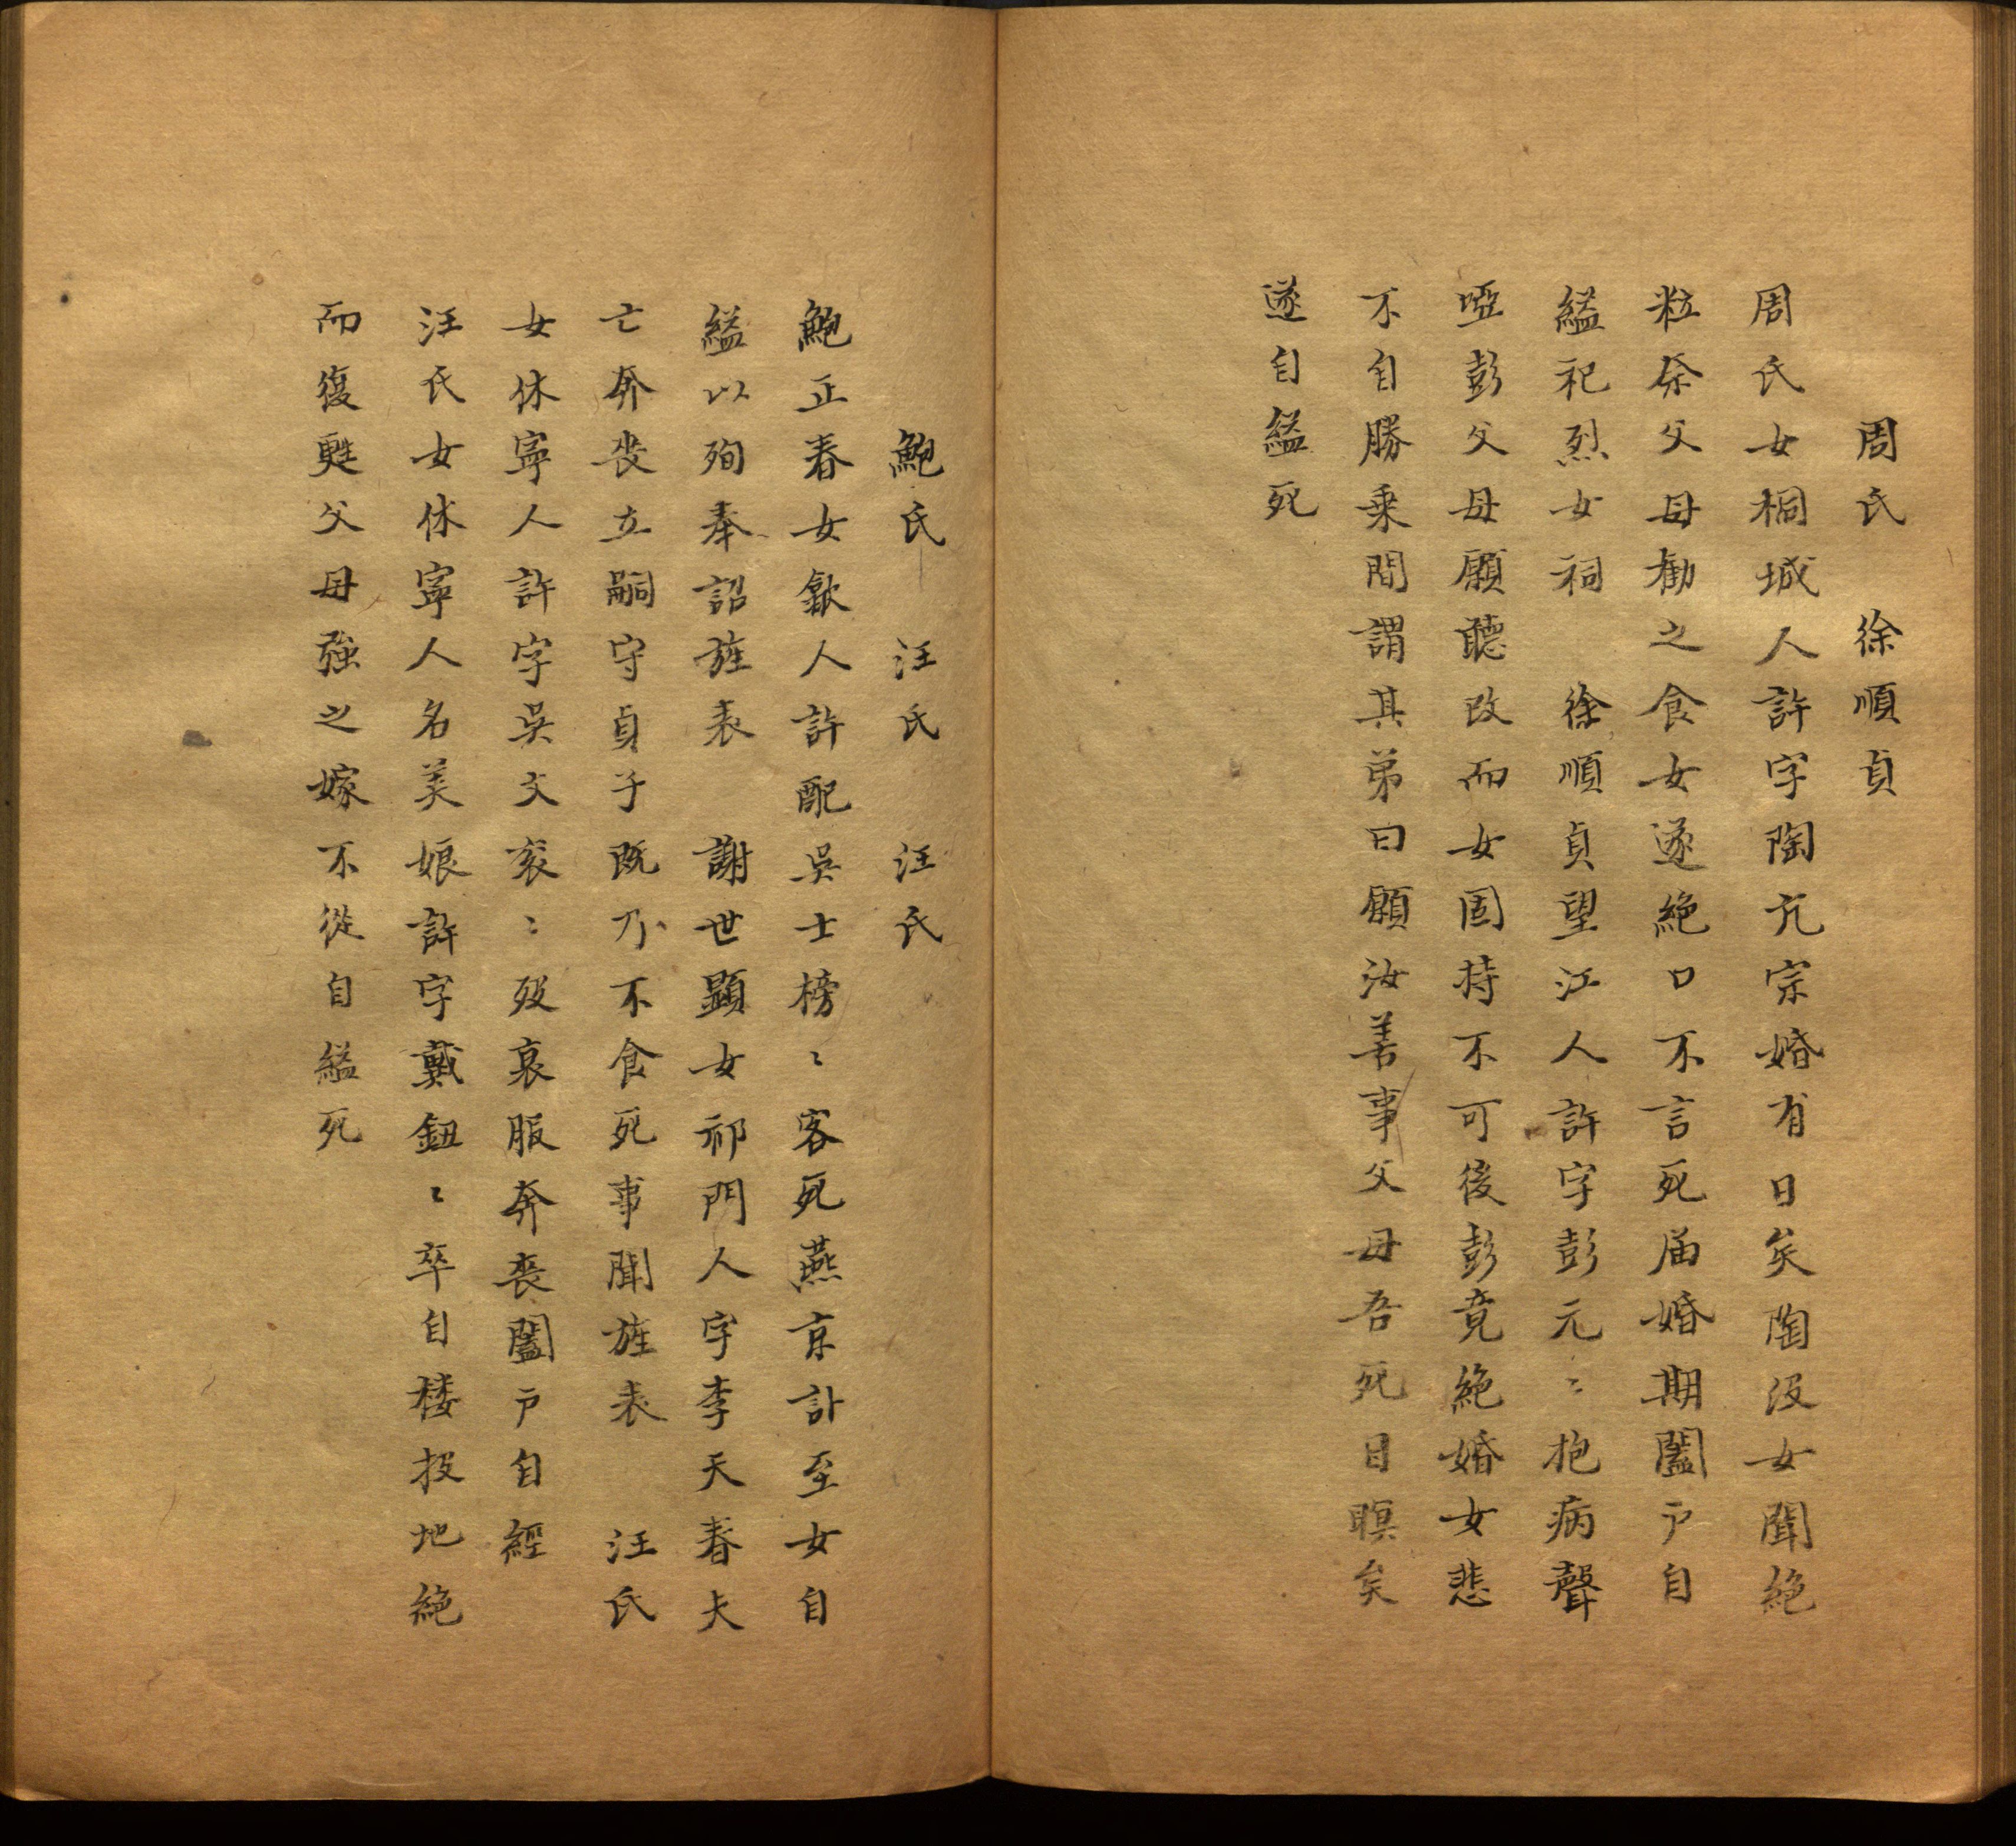 周氏　徐順貞
周氏女桐城人許字陶亢宗婚有日矣陶沒女聞絕
粒祭父母勸之食女遂絕口不言死届婚期闔戶自
縊祀烈女祠　徐順貞望江人許字彭元〻抱病聲
啞彭父母願聽改而女固持不可後彭竟絕婚女悲
不自勝乗間謂其弟曰願汝善事父母吾死目瞑矣
遂自縊死
鮑氏　汪氏　汪氏
鮑正春女歙人許配吳士榜〻客死燕京訃至女自
縊以殉奉詔旌表　謝世顕女祁門人字李天春夫
亡奔丧立嗣守貞子既乃不食死事聞旌表　汪氏
女休寧人許字吳文衮〻歿衰服奔喪闔戶自經
汪氏女休寧人名美娘許字戴鈕〻卒自楼投地絕
而復甦父母強之嫁不從自縊死